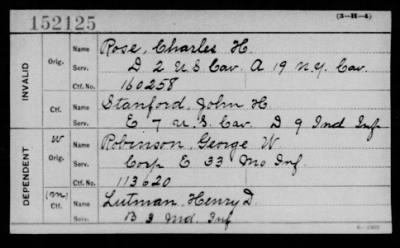 152125 (3-H-4)
INVALID Orig. Name Rose, Charles H.
Serv. D 2 U S Cav. A 19 N.Y. Cav.
Ctf. No. 160258
Ctf. Name Stanford, John H
Serv. E 7 U.S. Cav D 9 Ind Inf
DEPENDENT W Orig. Name Robinson, George W.
Serv. Corp E 33 Mo Inf.
Ctf. No. 113620
(M) Ctf. Name Lutman, Henry D.
Serv. B 3 Md. Inf